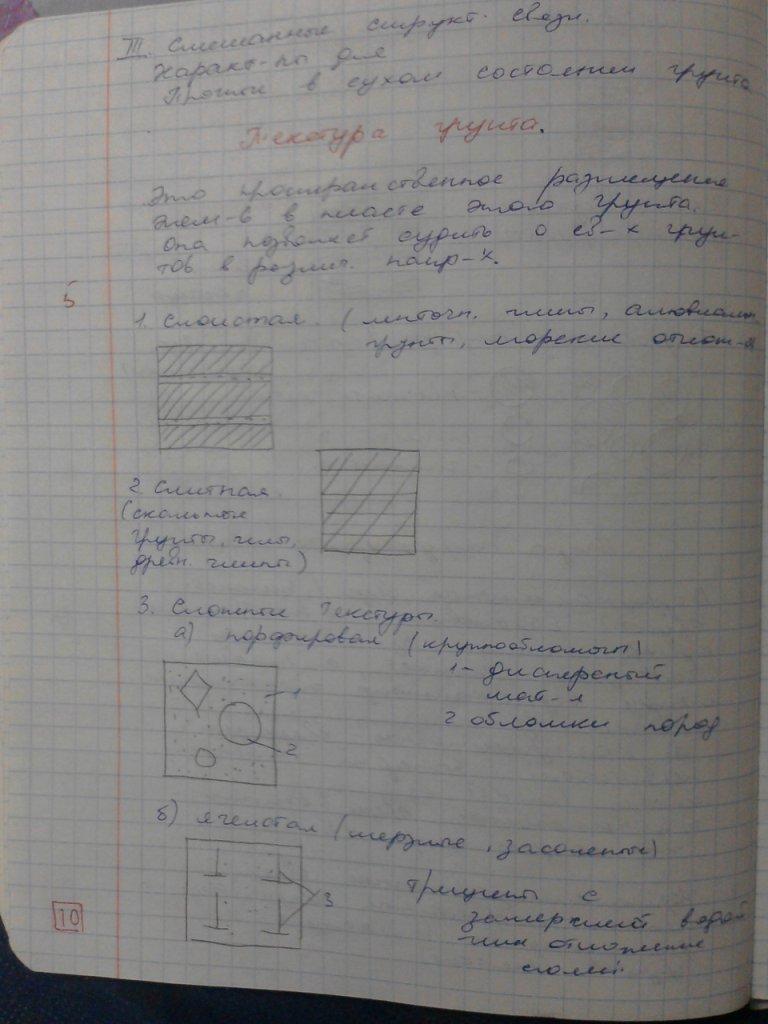 III. Смешанные структ. связи.
Характ-ны для
Прочны в сухом состоянии грунта
Текстура грунта.
Это пространственное размещение
элем-в в пласте этого грунта.
она позволяет судить о св-х грун-
тов в различ. напр-х.
5
1. Слоистая. (ленточн. глины, аллювиальн.
грунты, морские отлож-я
2. Слитная.
(скальные
грунты, илы,
древн. глины)
3. Сложные текстуры.
а) порфировая (крупнообломочн)
1- дисперсный
мат-л
1
2 обломки пород
2
б) ячеистая (мерзлые, засоленые)
3
трещины с
замерзшей водой
или отложение
солей.
10